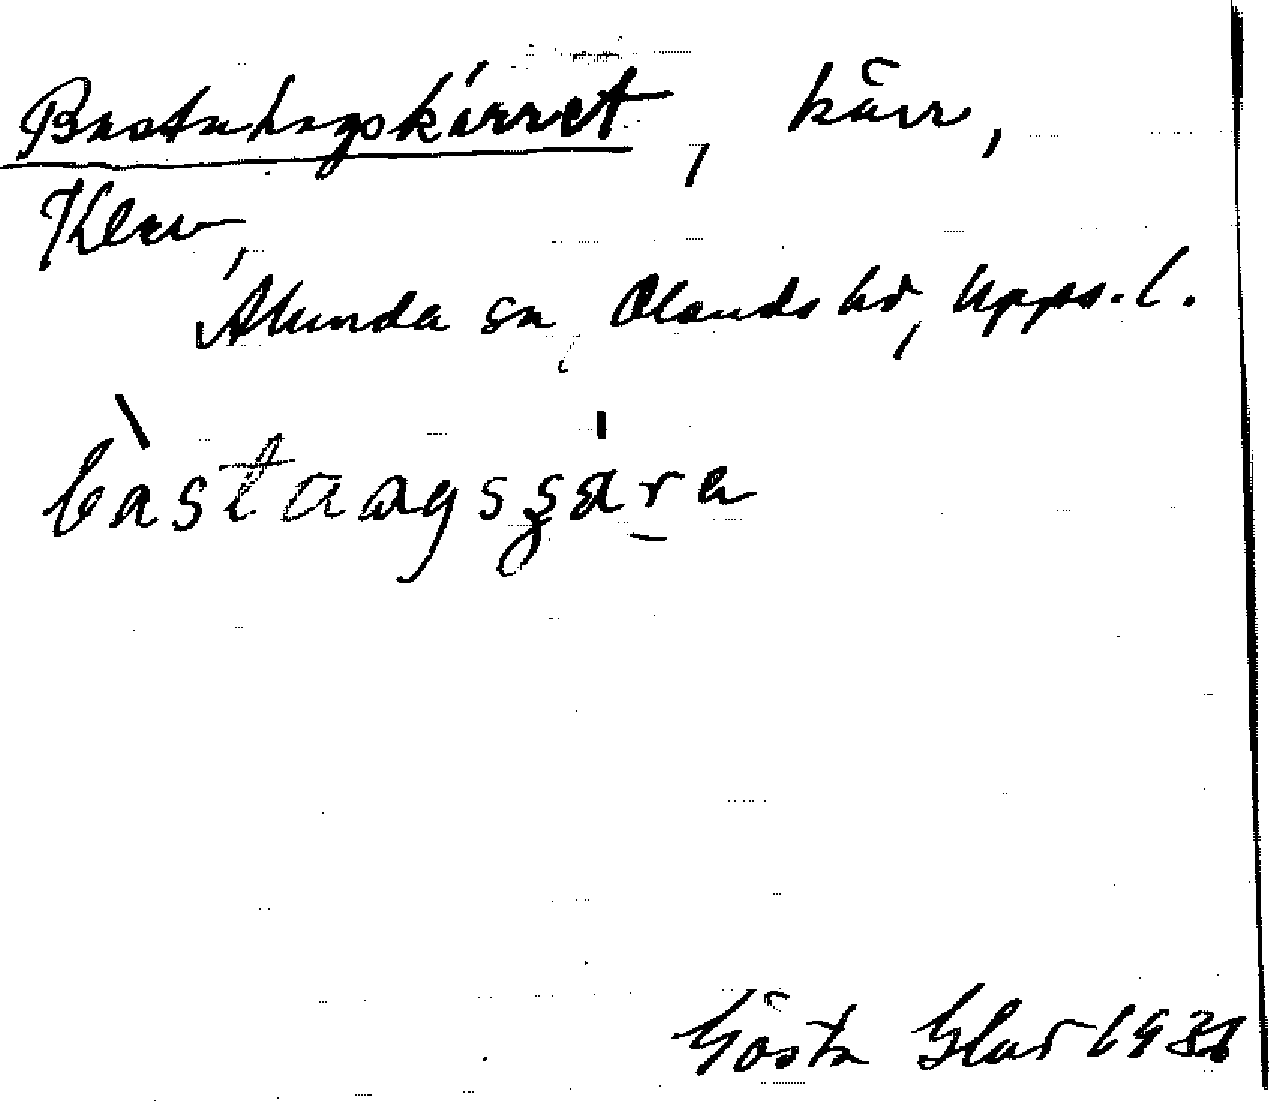 Bastuhagskärret, kärr,
Klev,
Alunda sn, Olands hd, Upps. l.
bàstaagsʂára
Gösta Glad 193